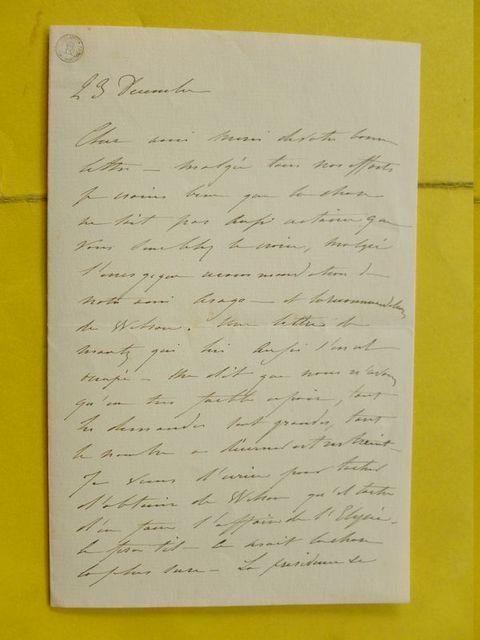 23 Décembre
Cher ami merci de votre bonne
lettre — malgré tous nos efforts
je crains bien que la chose
ne soit pas aussi certaine que
vous semblez le croire, malgré
l'énergique recommandation de
notre ami — et la recommandation
de Wilson. Une lettre de
Mantz qui lui aussi s'en est
occupé — me dit que nous n'avons
qu'un très faible espoir, tant
les demandes sont grandes, tant
le nombre à décerner est restreint —
Je viens d'écrire pour
d'obtenir de Wilson qu'il
d'en faire l'affaire de l'Elysée.
le fera-t-il — ce serait la chose
la plus sure — La présidence se